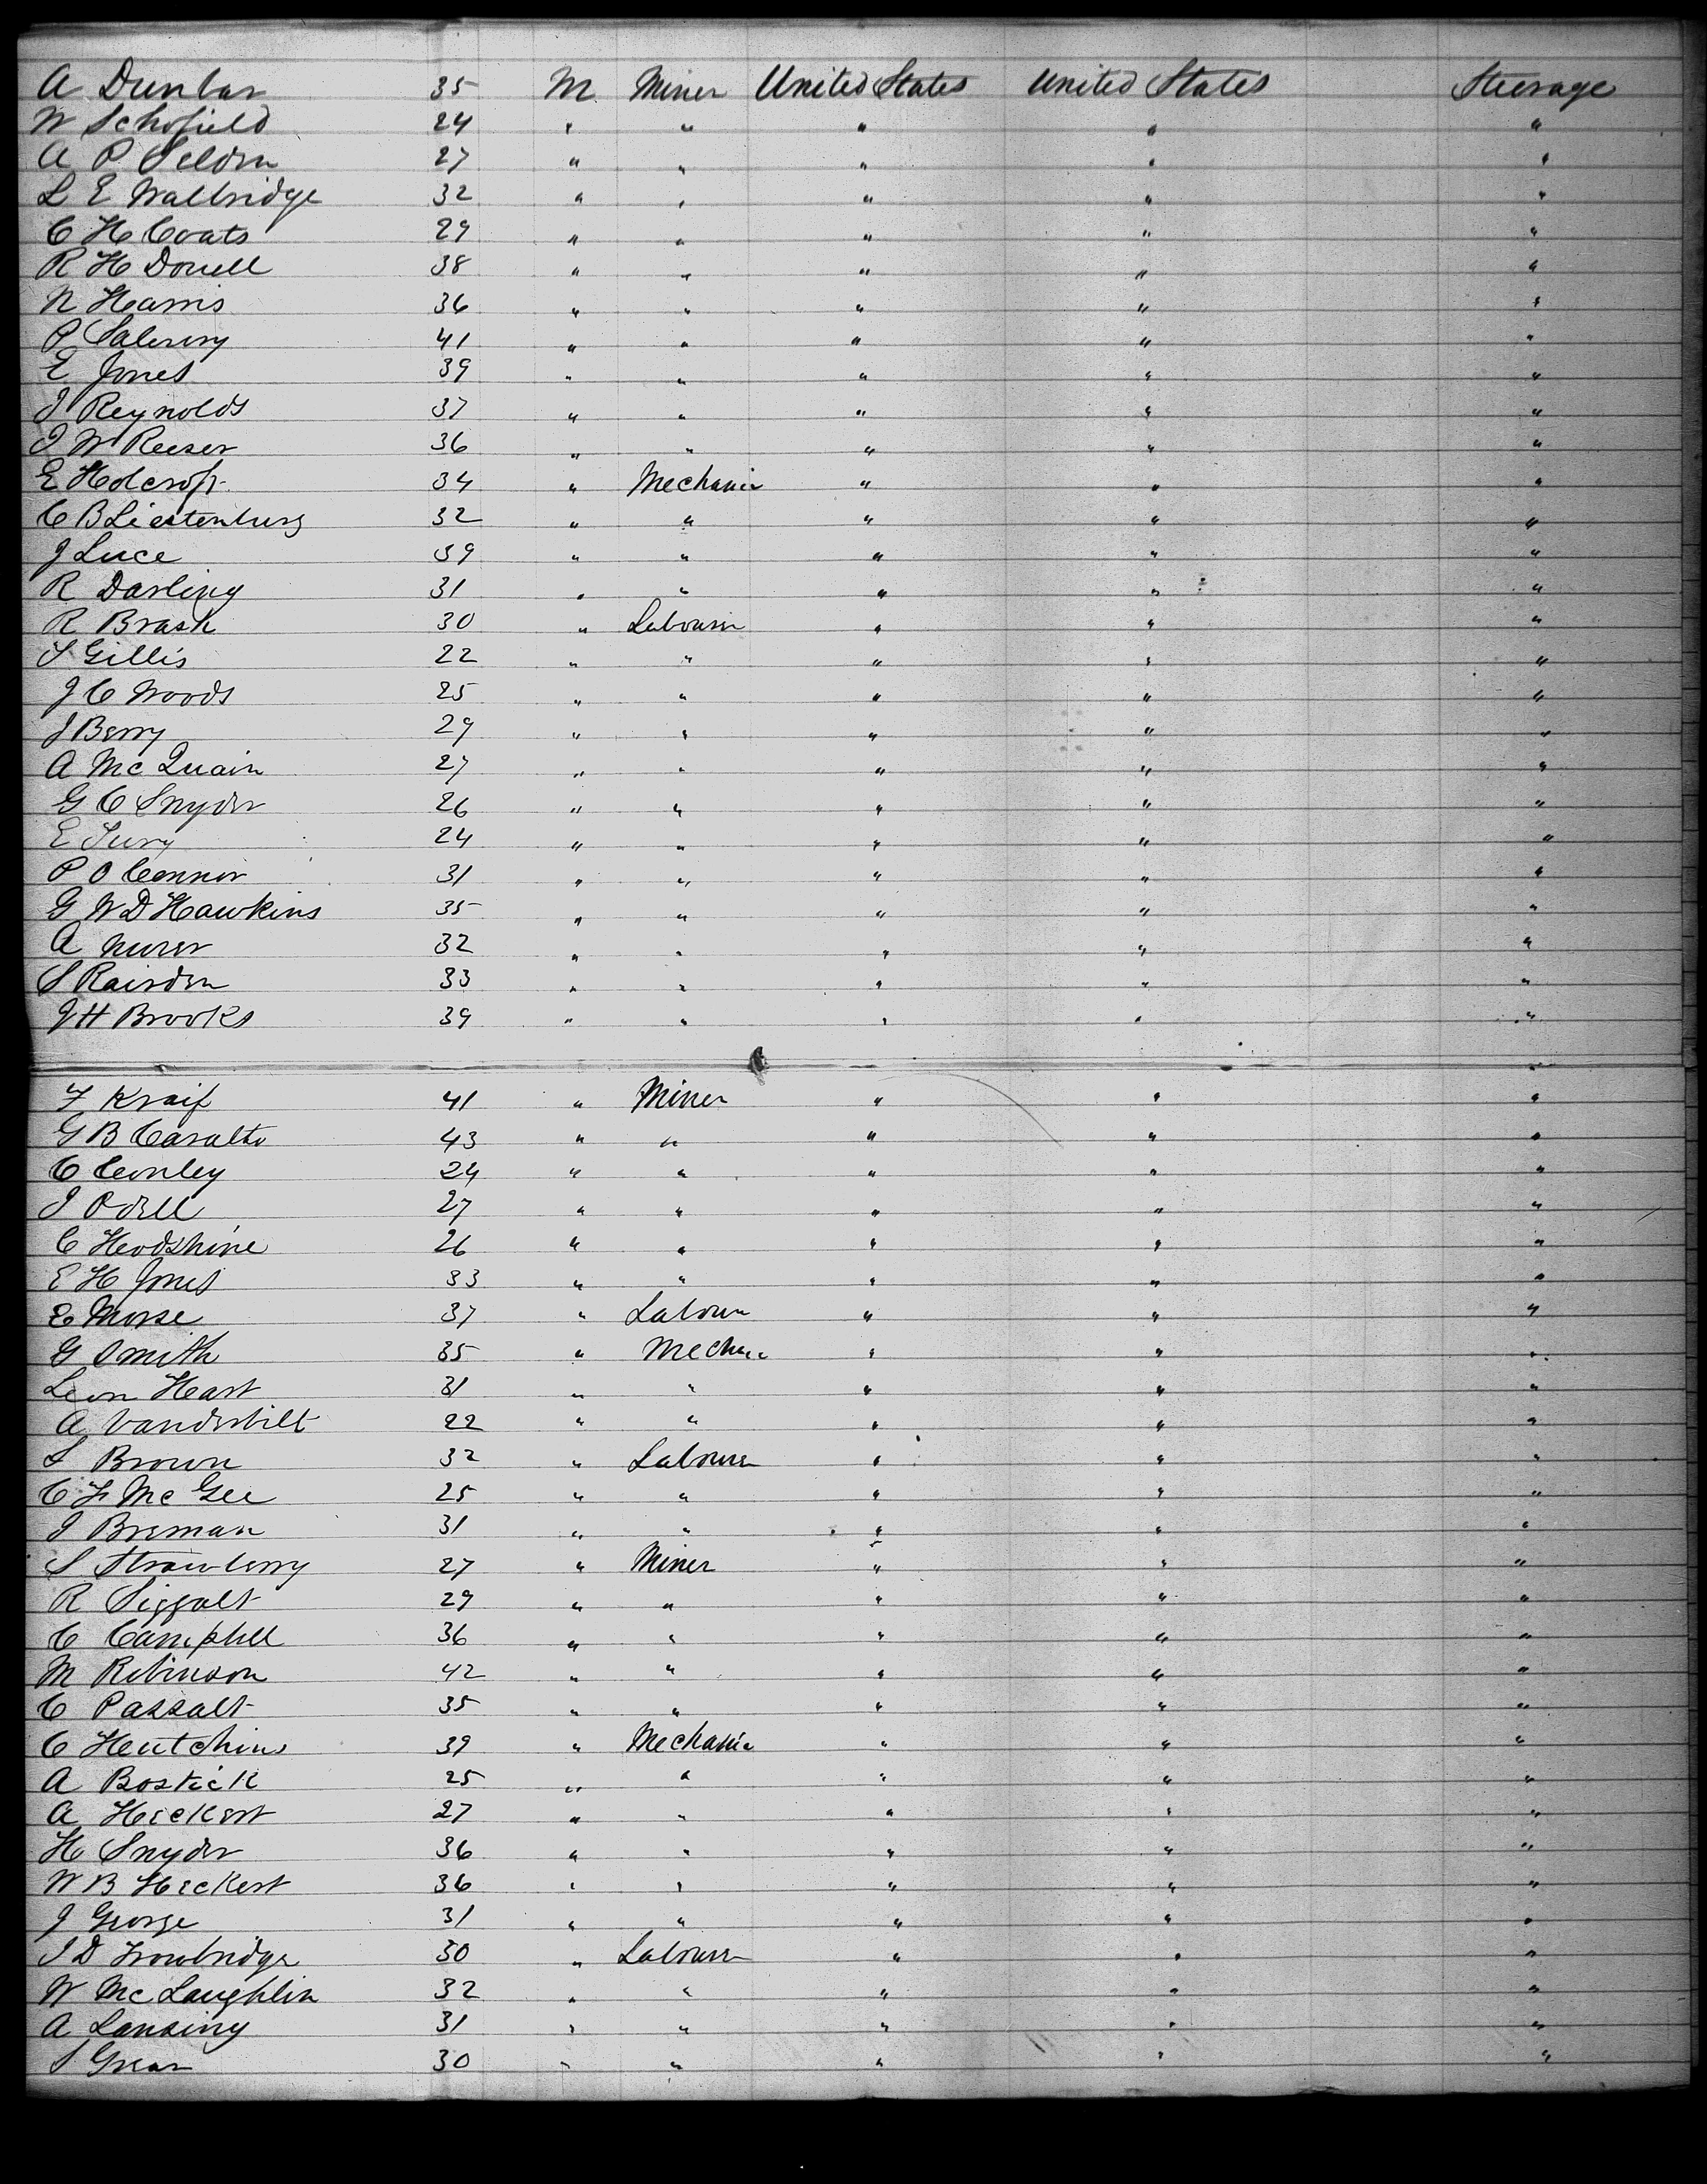 A Dunbar 35 M Miner United States United States Steerage
W Schofield 24 " " " " "
A P Seldin 27 " " " " "
L E Wallbridge 32 " " " " "
C H Coats 29 " " " " "
R H Dorrell 38 " " " " "
N Harris 36 " " " " "
P 41 " " " " "
E Jones 39 " " " " "
J Reynolds 37 " " " " "
J W Reeser 36 " " " " "
E Holcroft 34 " Mechanic " " "
C B 32 " " " " "
J Luce 39 " " " " "
R Darling 31 " " " " "
R Brash 30 " Labourer " " "
S Gillis 22 " " " " "
J C Woods 25 " " " " "
J Berry 29 " " " " "
A McQuain 27 " " " " "
G C Snyder 26 " " " " "
E 24 " " " " "
P O Connor 31 " " " " "
G W D Hawkins 35 " " " " "
A 32 " " " " "
S Raisden 33 " " " " "
J H Brooks 39 " " " " "
F 41 " Miner " " "
G B 43 " " " " "
C Conley 24 " " " " "
J Odell 27 " " " " "
C Hodshine 26 " " " " "
E H Jones 33 " " " " "
E Morse 37 " Labour " " "
G Smith 35 " Mechanic " " "
Leon Hart 31 " " " " "
A Vanderbilt 22 " " " " "
S Brown 32 " Labourer " " "
C F McGee 25 " " " " "
J Breman 31 " " " " "
S Strawberry 27 " Miner " " "
R 29 " " " " "
C Camphell 36 " " " " "
M Robinson 42 " " " " "
C Passalt 35 " " " " "
C Hutchins 39 " Mechanic " " "
A Bostick 25 " " " " "
A Heckert 27 " " " " "
H Snyder 36 " " " " "
W B Heckert 36 " " " " "
J George 31 " " " " "
J D Trowbridge 30 " Labourer " " "
W McLaughlin 32 " " " " "
A Lansing 31 " " " " "
S Grear 30 " " " " "